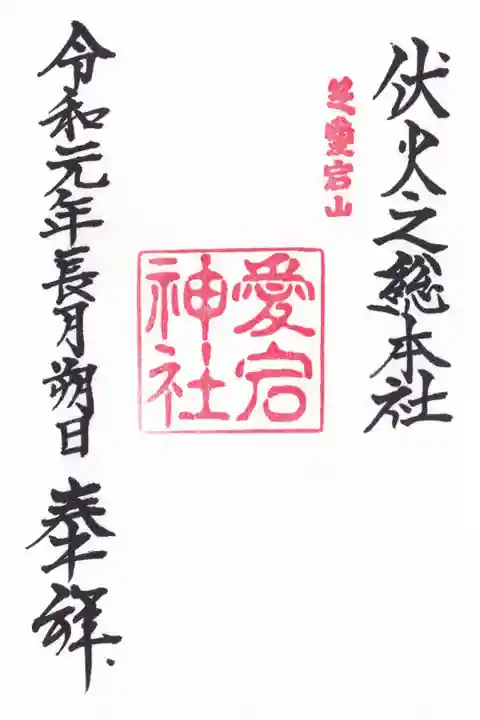 伏火之総本社
芝愛宕山
愛宕
神社
令和元年長月朔日 奉拝